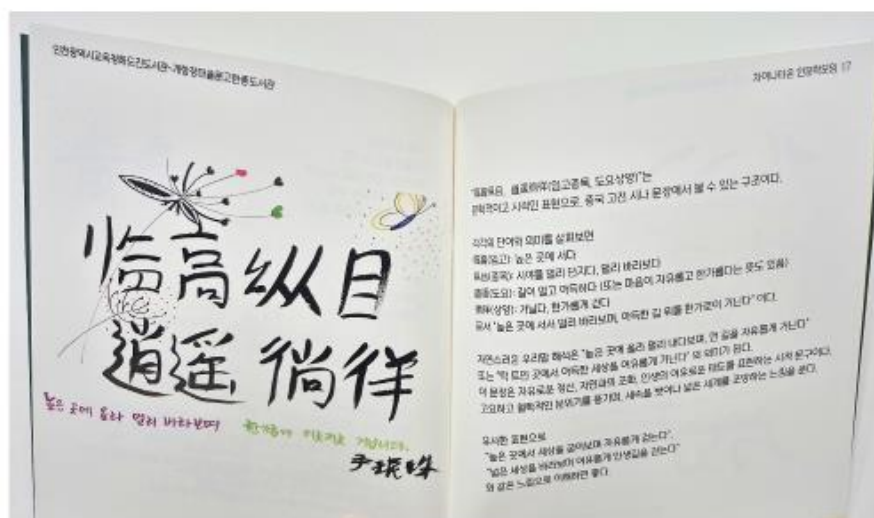 인천광역시교육청화도진도서관-개항장마을문고한중도서관
临高纵目
逍遥徜徉
높은 곳에 올라 멀리 바라보며
차이나타운 인문학모임 17
문학적이고 시적인 표현으로, 중국 고전 시나 문장에서 볼 수 있는 구조이다.
각각의 단어와 의미를 살펴보면
(임고): 높은 곳에 서다
(종목): 시야를 멀리 던지다, 멀리 바라보다
(도요): 길이 멀고 아득하다 (또는 마음이 자유롭고 한가롭다는 뜻도 있음)
(상양): 거닐다, 한가롭게 걷다
"높은 곳에 서서 멀리 바라보며, 아득한 길 위를 한가로이 거닌다" 이다.
자연스러운 우리말 해석은 "높은 곳에 올라 멀리 내다보며, 먼 길을 자유롭게 거닌다"
또는 "탁 트인 곳에서 아득한 세상을 여유롭게 거닌다" 의 의미가 된다.
이 문장은 자유로운 정신, 자연과의 조화, 인생의 여유로운 태도를 표현하는 시적 문구이다.
고요하고 철학적인 분위기를 풍기며, 세속을 벗어나 넓은 세계를 조망하는 느낌을 준다.
유사한 표현으로
"높은 곳에서 세상을 굽어보며 자유롭게 걷는다",
"넓은 세상을 바라보며 여유롭게 인생길을 걷는다"
와 같은 느낌으로 이해하면 좋다.